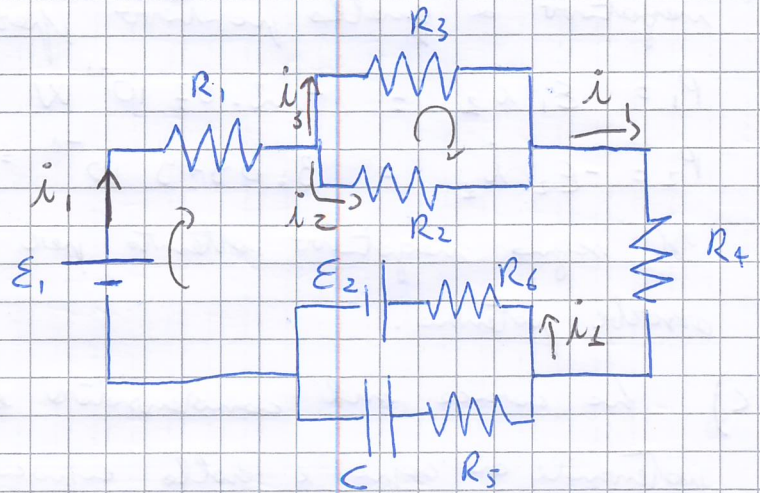 R3
R1
i3
i1
i1
i2
R2
R4
ε1
ε2
R6
i1
C
R5